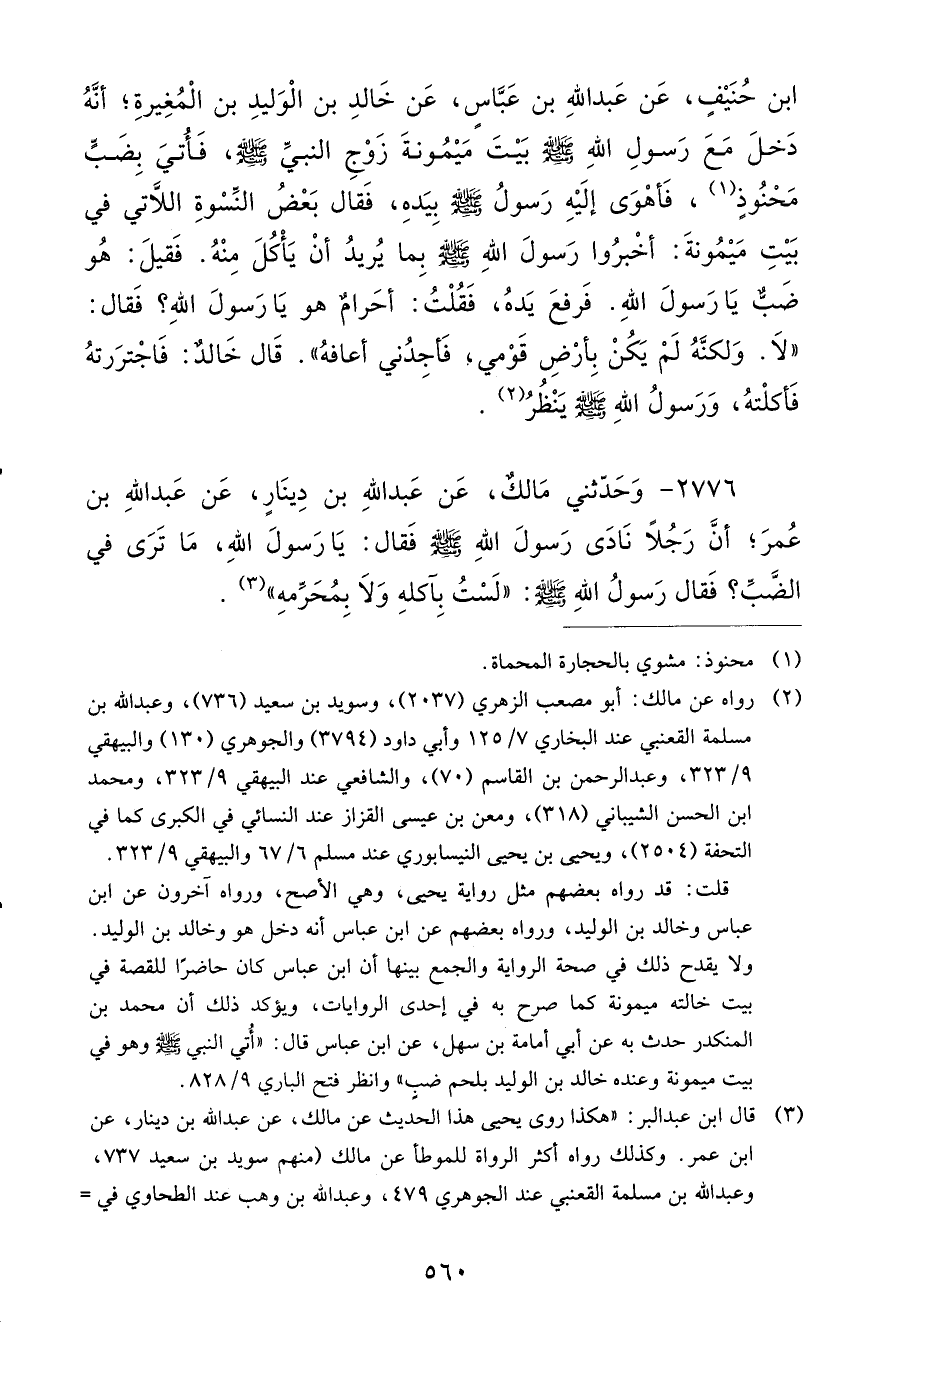 ابن حُنَيْفٍ، عَن عَبدالله بن عَبَّاسٍ، عَن خَالدِ بن الْوَليدِ بن الْمُغِيرةِ؛ أنَّهُ
دَخلَ مَعَ رَسولِ اللهِ ﷺ بَيْتَ مَيْمُونةَ زَوْجِ النبيِّ ﷺ، فَأُتيَ بِضَبٍّ
مَحْنُوذٍ(١) ، فَأهْوَى إلَيْهِ رَسولُ ﷺ بيَدهِ، فَقال بَعْضُ النِّسْوةِ اللاَّتي في
بَيْتِ مَيْمُونةَ: أخْبرُوا رَسولَ اللهِ ﷺ بِما يُريدُ أنْ يَأْكُلَ مِنْهُ. فَقيلَ: هُو
ضَبٌّ يَا رَسولَ اللهِ. فَرفعَ يَدهُ، فَقُلْتُ: أحَرامٌ هو يَا رَسولَ اللهِ؟ فَقال:
«لاَ. وَلكنَّهُ لَمْ يَكُنْ بِأرْضِ قَوْمي، فَأجِدُني أعافهُ». قَال خَالدٌ: فَاجْتررَتهُ
فَأكلْتهُ، وَرَسولُ اللهِ ﷺ يَنْظُرُ(٢) .
٢٧٧٦- وَحَدّثني مَالكٌ، عَن عَبدالله بن دِينَارٍ، عَن عَبدالله بن
عُمرَ؛ أنَّ رَجُلاً نَادَى رَسولَ اللهِ ﷺ فَقال: يَا رَسولَ اللهِ، مَا تَرَى في
الضَّبِّ؟ فَقال رَسولُ اللهِ ﷺ: «لَسْتُ بِآكلهِ وَلاَ بِمُحَرِّمهِ»(٣) .
(١) محنوذ: مشوي بالحجارة المحماة.
(٢) رواه عن مالك: أبو مصعب الزهري (٢٠٣٧)، وسويد بن سعيد (٧٣٦)، وعبدالله بن
مسلمة القعنبي عند البخاري ٧/ ١٢٥ وأبي داود (٣٧٩٤) والجوهري (١٣٠) والبيهقي
٩/ ٣٢٣، وعبدالرحمن بن القاسم (٧٠)، والشافعي عند البيهقي ٩/ ٣٢٣، ومحمد
ابن الحسن الشيباني (٣١٨)، ومعن بن عيسى القزاز عند النسائي في الكبرى كما في
التحفة (٢٥٠٤)، ويحيى بن يحيى النيسابوري عند مسلم ٦/ ٦٧ والبيهقي ٩/ ٣٢٣.
قلت: قد رواه بعضهم مثل رواية يحيى، وهي الأصح، ورواه آخرون عن ابن
عباس وخالد بن الوليد، ورواه بعضهم عن ابن عباس أنه دخل هو وخالد بن الوليد.
ولا يقدح ذلك في صحة الرواية والجمع بينها أن ابن عباس كان حاضرًا للقصة في
بيت خالته ميمونة كما صرح به في إحدى الروايات، ويؤكد ذلك أن محمد بن
المنكدر حدث به عن أبي أمامة بن سهل، عن ابن عباس قال: «أُتي النبي ﷺ وهو في
بيت ميمونة وعنده خالد بن الوليد بلحم ضبٍ» وانظر فتح الباري ٩/ ٨٢٨.
(٣) قال ابن عبدالبر: «هكذا روى يحيى هذا الحديث عن مالك، عن عبدالله بن دينار، عن
ابن عمر. وكذلك رواه أكثر الرواة للموطأ عن مالك (منهم سويد بن سعيد ٧٣٧،
وعبدالله بن مسلمة القعنبي عند الجوهري ٤٧٩، وعبدالله بن وهب عند الطحاوي في =
٥٦٠